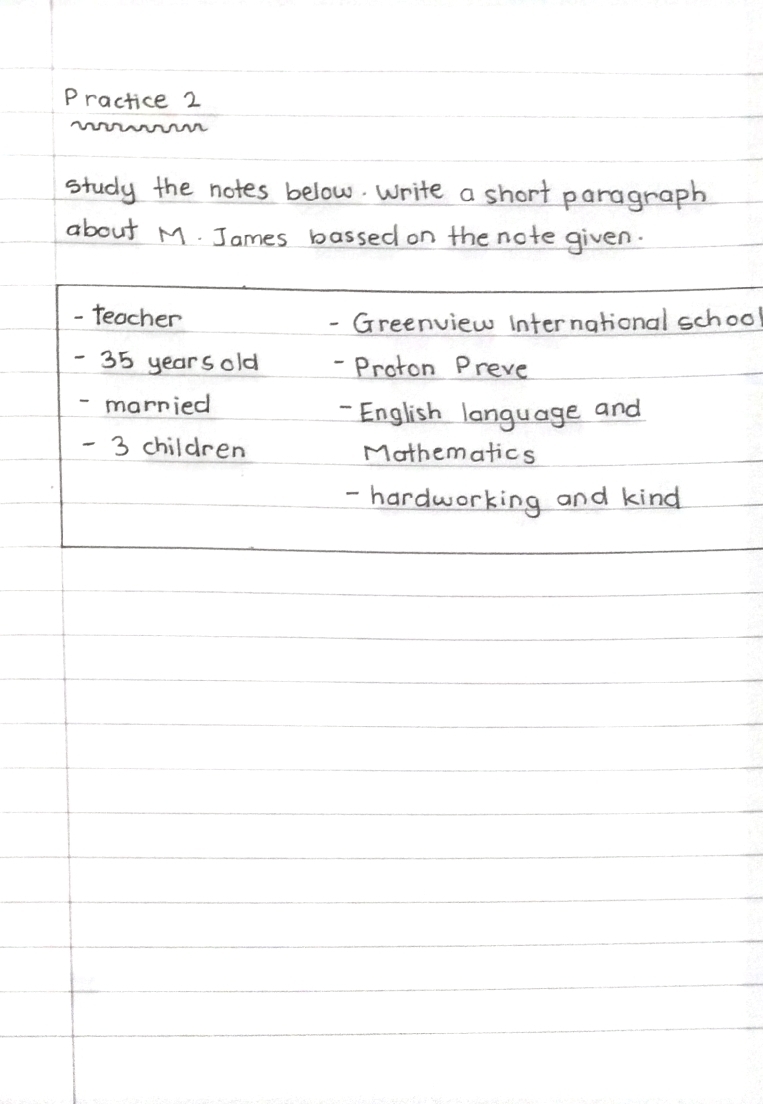 Practice 2
study the notes below. Write a short paragraph
about M. James bassed on the note given.
- teacher
- 35 years old
- married
- 3 children
- Greenview International school
- Proton Preve
- English language and
Mathematics
- hardworking and kind